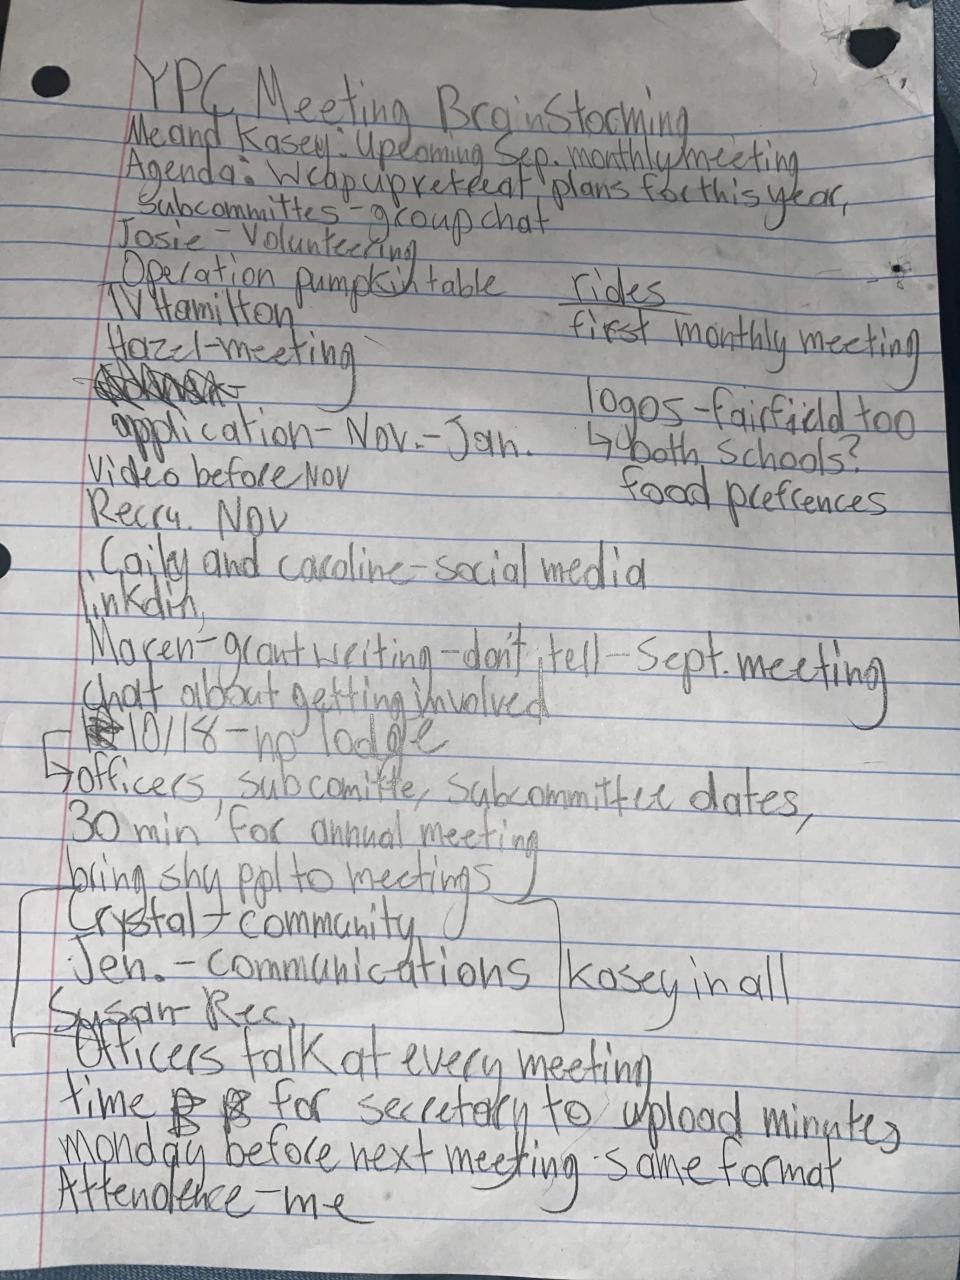 YPC Meeting Brainstorming
Me and Kasey: Upcoming Sep. monthly meeting
Agenda: Wrap up retreat plans for this year,
subcommittes - group chat
Josie - Volunteering
Operation pumpkin table
TV Hamilton
Hazel - meeting
application - Nov. - Jan.
Video before Nov
Recru. Nov
rides
first monthly meeting
logos - fairfield too
↳ both schools?
food prefrences
Caily and caroline - social media
linkdin,
Maren - grant writing - don't tell - Sept. meeting
chat about getting involved
10/18 - no lodge
↳ officers, subcomitte, subcommittee dates,
30 min for annual meeting
bring shy ppl to meetings
Crystal - community
Jen. - communications
Susan - Rec.
Kasey in all
Officers talk at every meeting
time for secretary to upload minutes
monday before next meeting - same format
Attendence - me